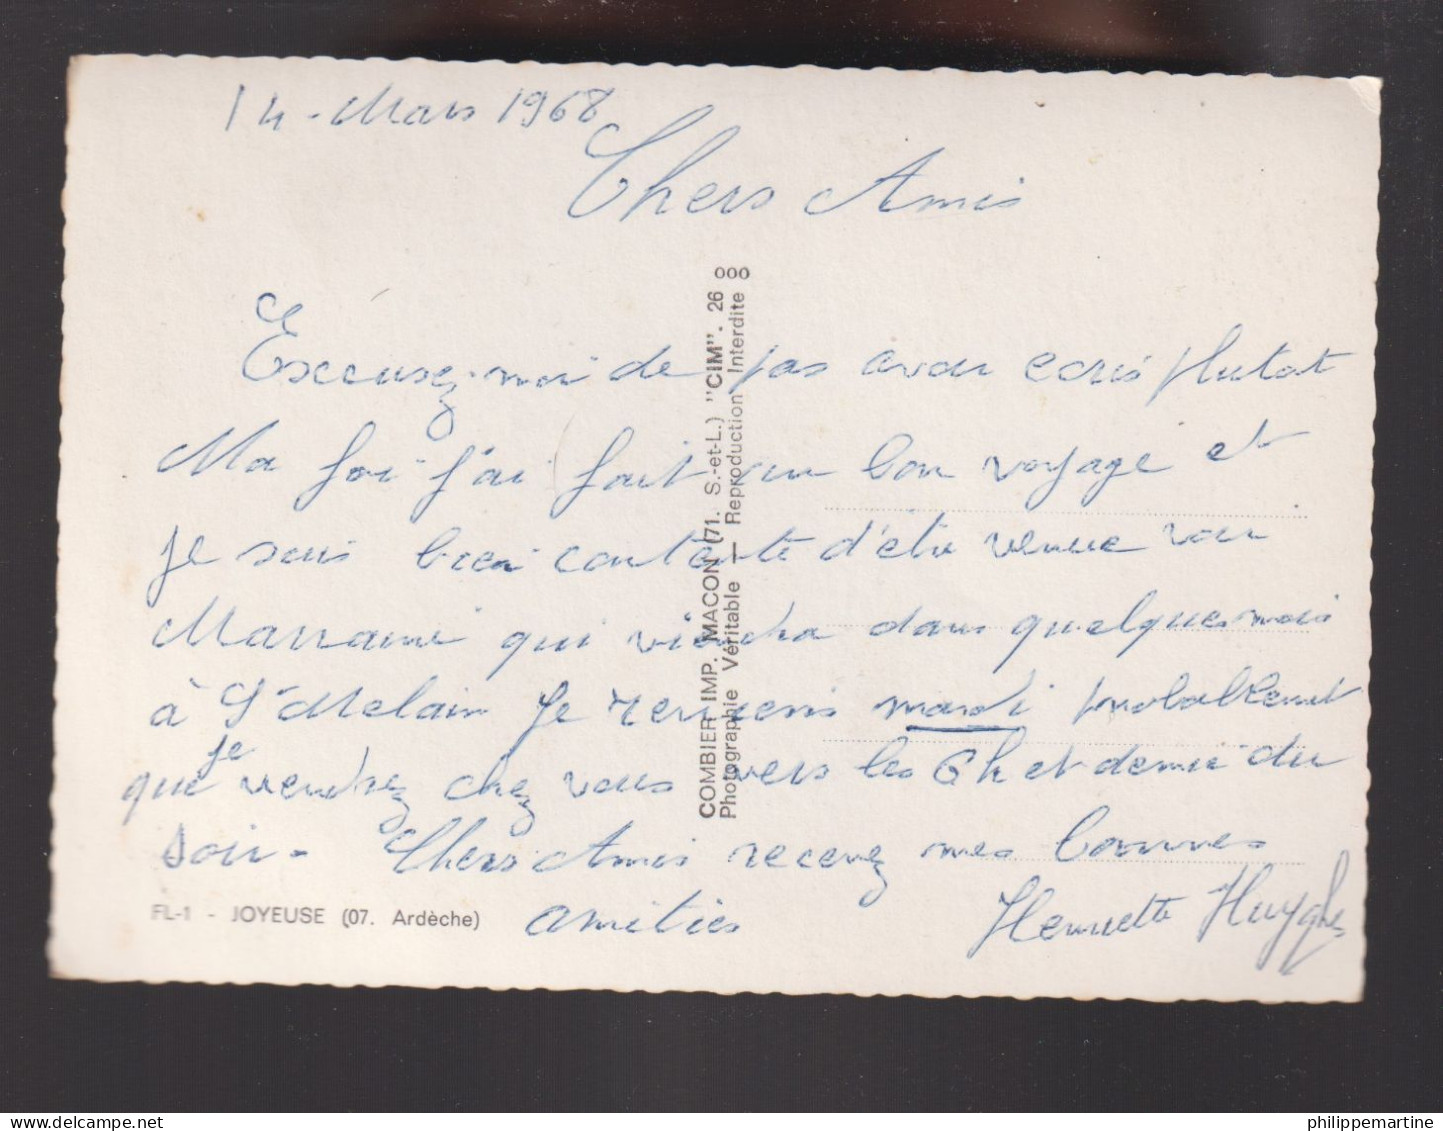 14 - Mars 1968
Chers Amis
Excusez-moi de pas avoir ecris plutot
Ma foi j'ai fait un bon voyage et
je suis bien contente d'être venue voir
Marraine qui viendra dans quelques mois
à St Melain Je reviens mardi probablement
que je vendrez chez vous vers les 6h et demie du
soir - Chers Amis recevez mes bonnes
amitiés Henriette Huyghes
FL-1 - JOYEUSE (07. Ardèche)
COMBIER IMP. MACON (71. S.-et-L.) "CIM". 26 000
Photographie Véritable — Reproduction Interdite
philippemartine